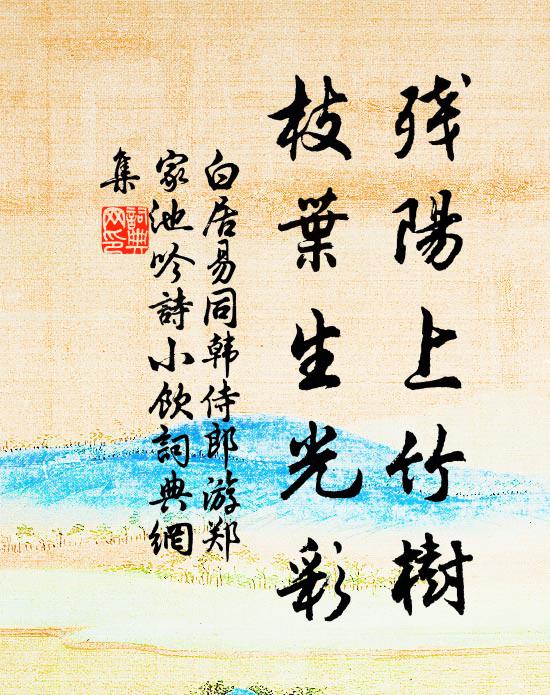 残陽上竹樹
枝葉生光彩
白居易同韩侍郎游郑
家池吟詩小飲詞典網
集
詞典
网印